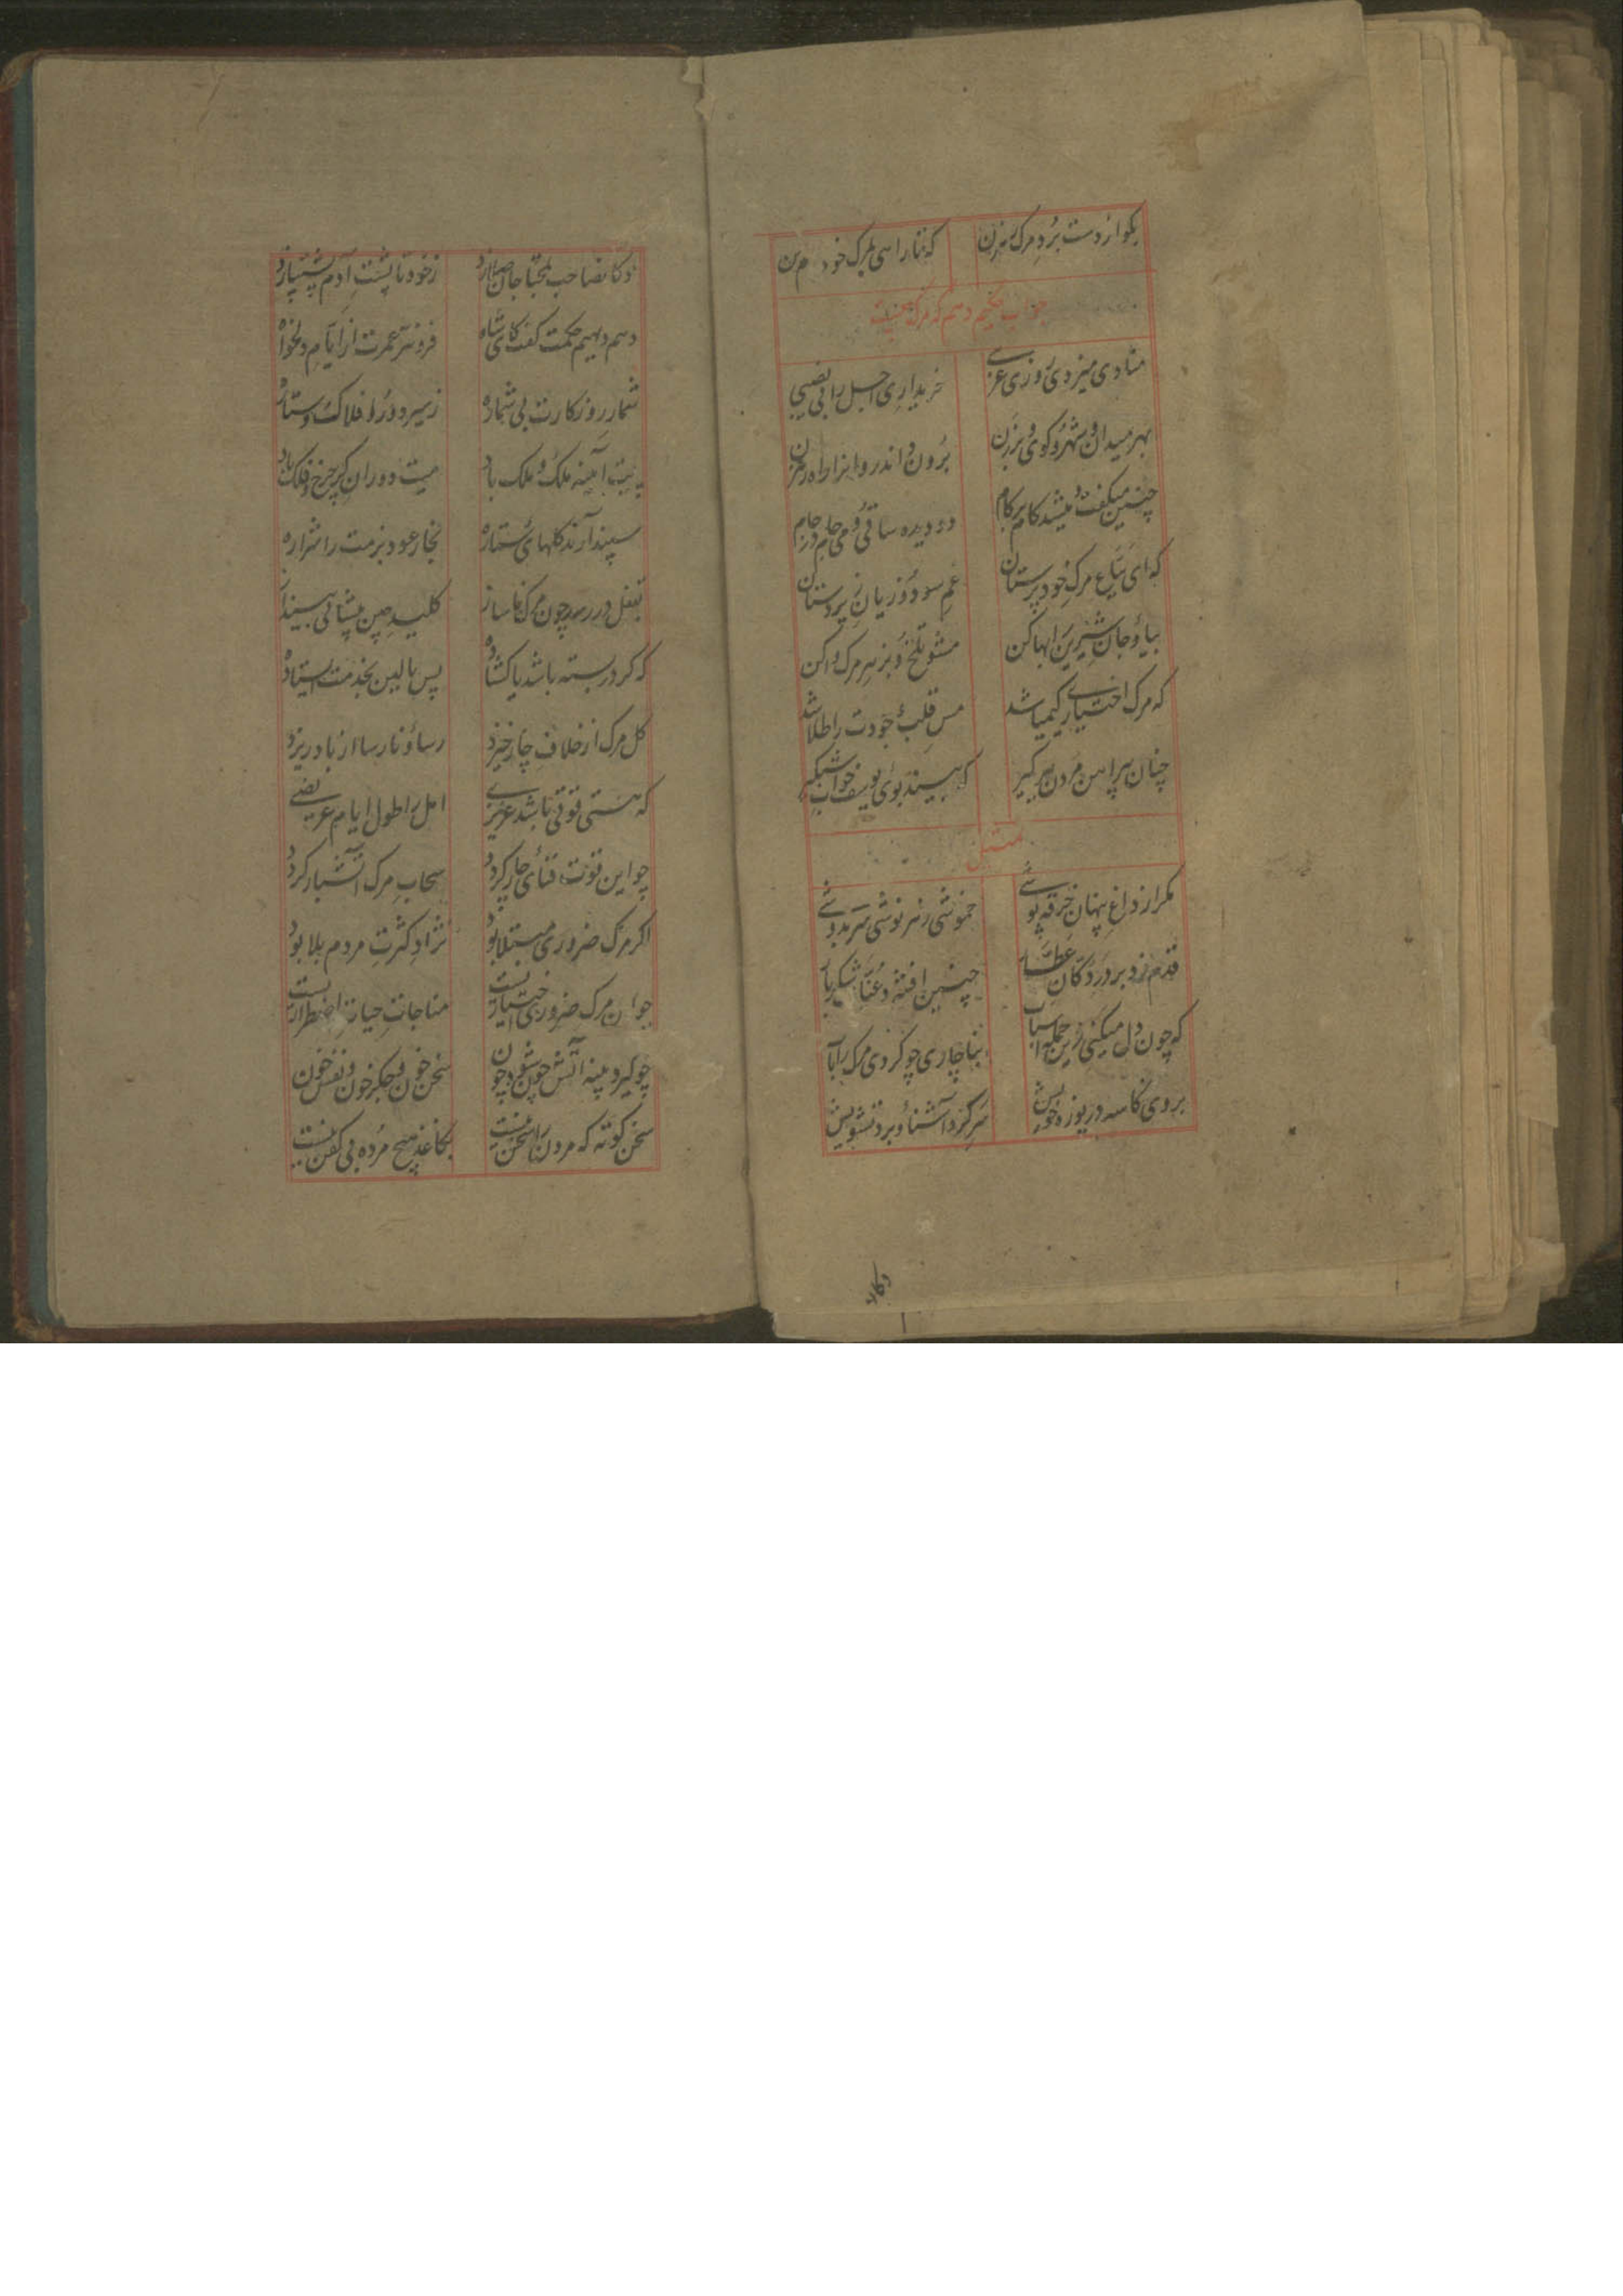 بکو از دست برد مرک رهزن که تا راهی بمرک خود
جواب حکیم دهم که مرک چیست
منادی میزدی روزی غریبی خریداری اجل را بی نصیبی
بهر میدان و شهر و کوی و برزن برون و اندر و
چنین میکفت و میشد کام بر کام دو دیده ساقی و می جام در جام
که ای بیاع مرک خود پرستان غم سود و زیان زیردستان
بیا و جان شیرین را بها کن مشو تلخ و بزهر مرک واکن
که مرک اختیاری کیمیا شد مس قلب وجودت را طلا شد
چنان پیراهن مردن ببر کیر که بیند بوی یوسف خواب شبکیر
تمثیل
مکر از داغ پنهان خرقه پوشی خموشی رمز نوشی سرمه دوشی
قدم زد بر در دکان عطار چنین
که چون دل میکنی زین جمله اسباب بناچاری چو کردی مرک را
بروی کاسه دریوزه خویش سر کرد آشنا و برد تشویش
دکان
دکان صاحب ز خود تا پشت آدم
دهم دیهیم حکمت کفت کای شاه فزونتر عمرت از ایام دلخواه
شمار روزکارت بی شماره ز سیر و دور افلاک و ستاره
آیینه ملک و ملک باد دوران چرخ و فلک باد
سپند آرند کلهای ستاره بخار عود بزمت را شراره
در رسد چون مرک ناساز کلید چین پیشانی
که کر در بسته باشد یا کشاده پس بالین بخدمت ایستاده
کل مرک از خلاف چار خیزد رسا و نارسا از باد ریزد
که هستی قوتی باشد غریزی امل را طول ایام عریضی
چو این قوت فنای چار کردد سحاب مرک آتشبار کردد
اکر مرک ضروری مبتلا بود نژاد کثرت مردم بلا بود
جوان مرک ضروری اختیاریست مناجات حیات اضطراریست
چو کیرد پنبه آتش چون شود چون سخن خون و جکر خون و نفس خون
سخن کوته که مردن را سخن نیست بکاغذ هیچ مرده بی کفن نیست